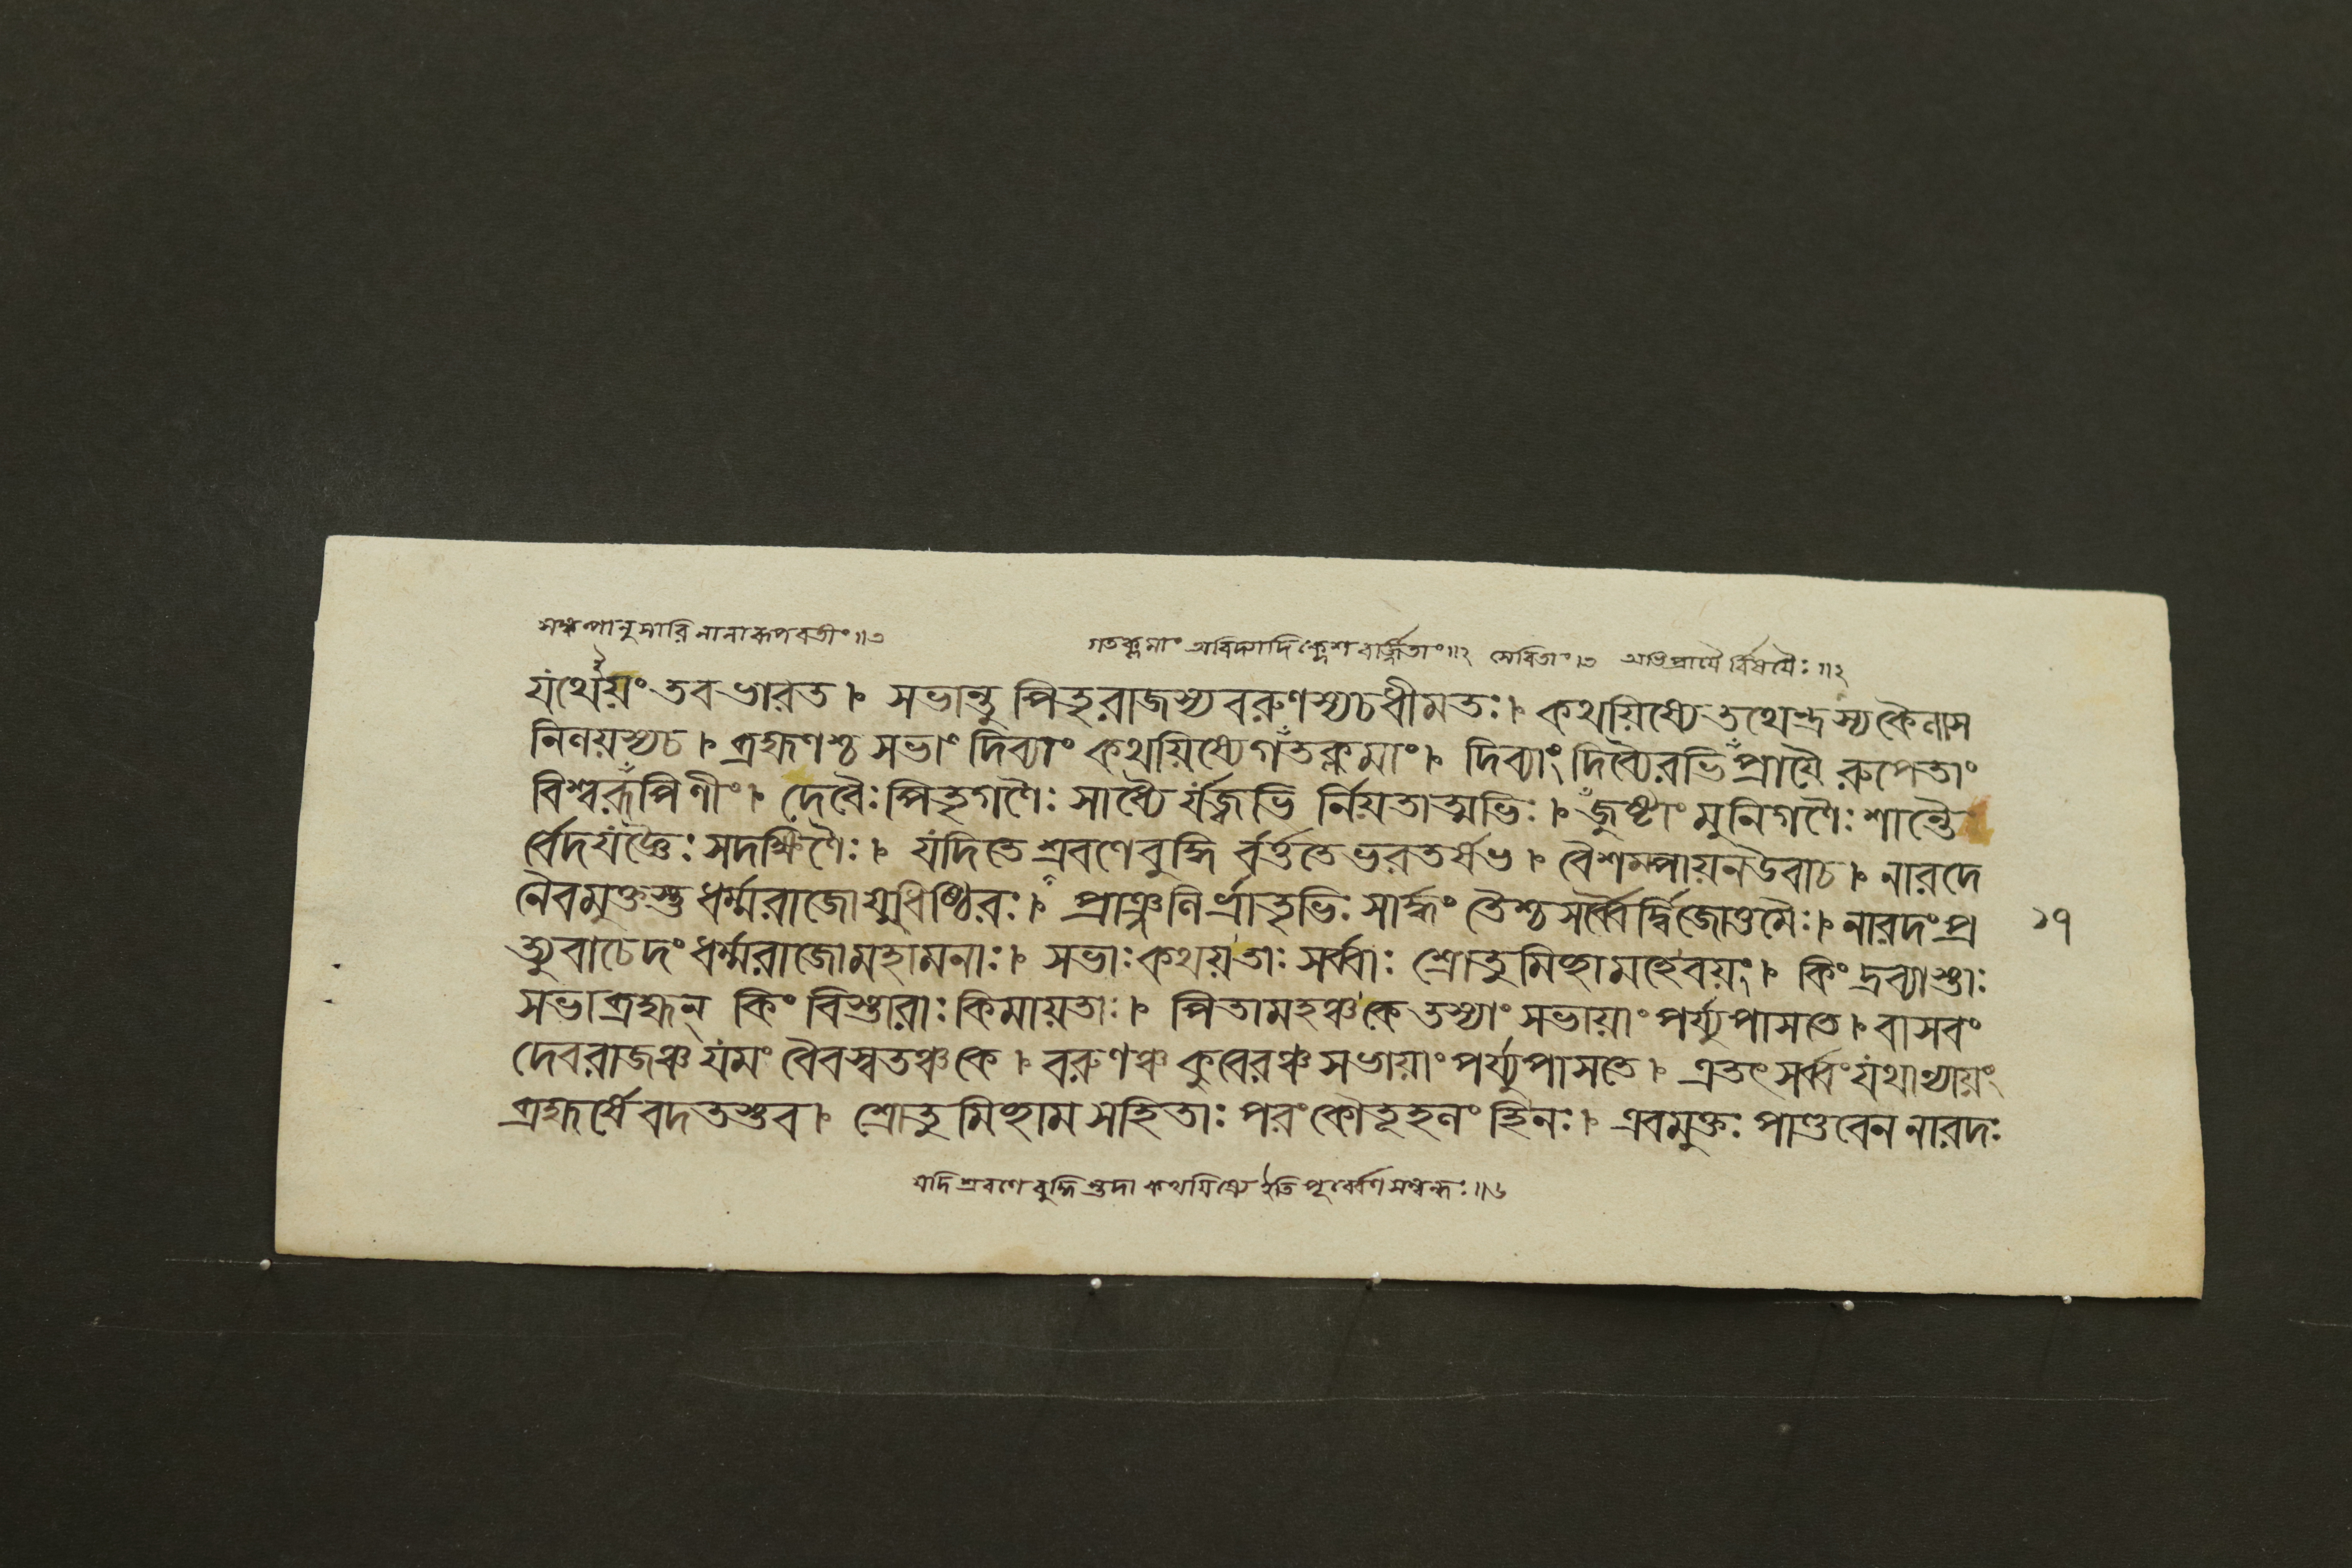 সঙ্কল্পানুসারি নানারূপবতীং॥৩
গতক্লমাং অবিদ্যাদিক্লেশবর্জ্জিতাং॥২ সেবিতাং।৩ অভিপ্রায়ৈর্বিষয়ৈঃ॥২
যথেয়ং তব ভারত। সভান্তু পিতৃরাজস্য বরুণস্য চ ধীমতঃ। কথয়িষ্যে তথেন্দ্রস্য কৈলাস
নিলয়স্য চ। ব্রহ্মণশ্চ সভাং দিব্যাং কথয়িষ্যে গতক্লমাং। দিব্যাং দিব্যৈরভিপ্রায়ৈ রুপেতাং
বিশ্বরূপিণীং। দেবৈঃ পিতৃগণৈঃ সাধ্যৈ র্যজ্বভি র্নিয়তাত্মভিঃ। জুষ্টাং মুনিগণৈঃ শান্তৈ
র্বেদযজ্ঞৈঃ সদক্ষিণৈঃ। যদি তে শ্রবণে বুদ্ধি র্বর্ত্ততে ভরতর্ষভ। বৈশম্পায়ন উবাচ। নারদে
নৈবমুক্তস্তু ধর্ম্মরাজো যুধিষ্ঠিরঃ। প্রাঞ্জলি র্ভ্রাতৃভিঃ সার্দ্ধং তৈশ্চ সর্ব্বৈর্দ্বিজোত্তমৈঃ। নারদং প্র
১৭
ত্যুবাচেদং ধর্ম্মরাজো মহামনাঃ। সভাঃ কথয় তাঃ সর্ব্বাঃ শ্রোতুমিচ্ছামহে বয়ং। কিং দ্রব্যাস্তাঃ
সভা ব্রহ্মন্ কিং বিস্তারাঃ কিমায়তাঃ। পিতামহঞ্চ কে তস্যাং সভায়াং পর্য্যুপাসতে। বাসবং
দেবরাজঞ্চ যমং বৈবস্বতঞ্চ কে। বরুণঞ্চ কুবেরঞ্চ সভায়াং পর্য্যুপাসতে। এতৎ সর্ব্বং যথান্যায়ং
ব্রহ্মর্ষে বদতস্তব। শ্রোতুমিচ্ছাম সহিতাঃ পরং কৌতূহলং হি নঃ। এবমুক্তঃ পাণ্ডবেন নারদঃ
যদি শ্রবণে বুদ্ধিস্তদা কথয়িষ্যে ইতি পূর্ব্বেণ সম্বন্ধঃ॥৬